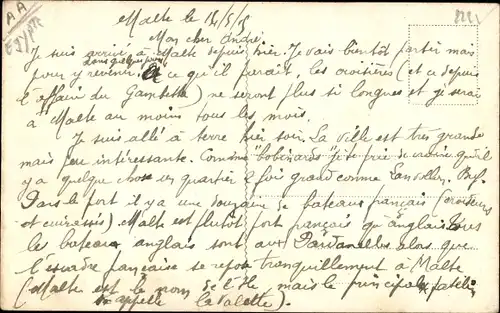 AA
Egypte
Malte le 14/5/15
Mon cher André.
Je suis arrivé à Malte depuis hier. Je vais bientôt partir mais
pour y revenir dans quelques jours. à ce qu'il paraît, les croisières (et ce depuis
l'affaire du Gambetta) ne seront plus si longues et je serai
à Malte au moins tous les mois.
Je suis allé à terre hier soir. La ville est très grande
mais peu intéressante. Comme "bobinards" je te prie de croire qu'il
y a quelque chose un quartier fois grand comme
Dans le port il y a une douzaine de bateaux français (croiseurs
et cuirassés) Malte est plutôt port français qu'anglais. Tous
les bateaux anglais sont aux Dardanelles alors que
l'escadre française se repose tranquillement à Malte
(Malte est le nom de l'île, mais le principal patelin
s'appelle la Valette).